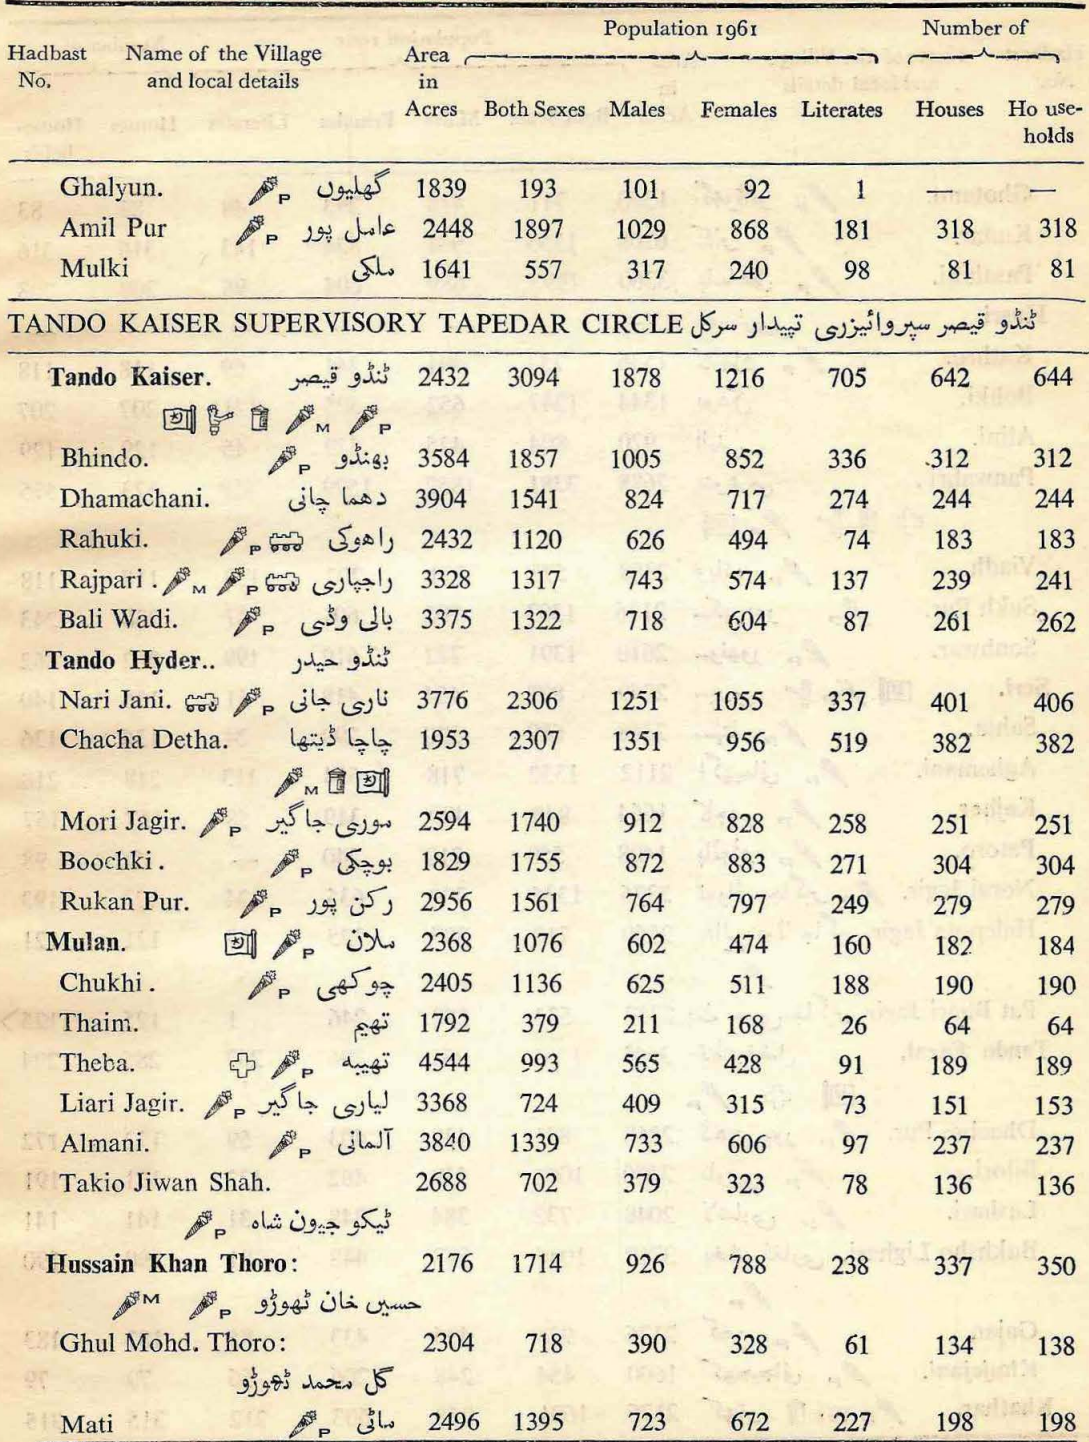 Population 1961 Number of
Hadbast Name of the Village Area
No. and local details in
Acres Both Sexes Males Females Literates Houses Ho use-
holds
Ghalyun. P گهليون 1839 193 101 92 1 — —
Amil Pur P عامل پور 2448 1897 1029 868 181 318 318
Mulki ملکی 1641 557 317 240 98 81 81
TANDO KAISER SUPERVISORY TAPEDAR CIRCLE ٹنڈو قيصر سپروائيزری تپيدار سرکل
Tando Kaiser. ٹنڈو قيصر 2432 3094 1878 1216 705 642 644
M P
Bhindo. P بهنڈو 3584 1857 1005 852 336 .312 312
Dhamachani. دهما چانی 3904 1541 824 717 274 244 244
Rahuki. P راهوکی 2432 1120 626 494 74 183 183
Rajpari . M P راجپاری 3328 1317 743 574 137 239 241
Bali Wadi. P بالی وڈی 3375 1322 718 604 87 261 262
Tando Hyder.. ٹنڈو حيدر
Nari Jani. P ناری جانی 3776 2306 1251 1055 337 401 406
Chacha Detha. چاچا ڈيتها 1953 2307 1351 956 519 382 382
M
Mori Jagir. P موری جاگير 2594 1740 912 828 258 251 251
Boochki . P بوچکی 1829 1755 872 883 271 304 304
Rukan Pur. P رکن پور 2956 1561 764 797 249 279 279
Mulan. P ملان 2368 1076 602 474 160 182 184
Chukhi . P چوکهی 2405 1136 625 511 188 190 190
Thaim. تهيم 1792 379 211 168 26 64 64
Theba. P تهيبه 4544 993 565 428 91 189 189
Liari Jagir. P لياری جاگير 3368 724 409 315 73 151 153
Almani. P آلمانی 3840 1339 733 606 97 237 237
Takio Jiwan Shah. 2688 702 379 323 78 136 136
P ٹيکو جيون شاه
Hussain Khan Thoro: 2176 1714 926 788 238 337 350
M P حسين خان ٹهوڑو
Ghul Mohd. Thoro: 2304 718 390 328 61 134 138
گل محمد ٹهوڑو
Mati P ماٹی 2496 1395 723 672 227 198 198